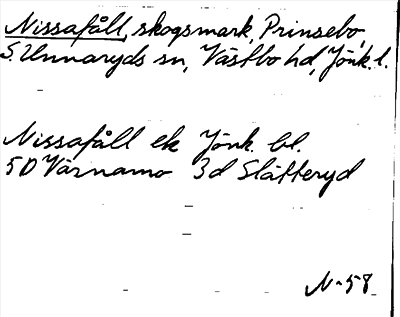 Nissafåll, skogsmark, Prinsebo,
S. Unnaryds sn, Västbo hd, Jönk. l.
Nissafåll ek Jönk. bl.
5D Värnamo 3d Slätteryd
N-58